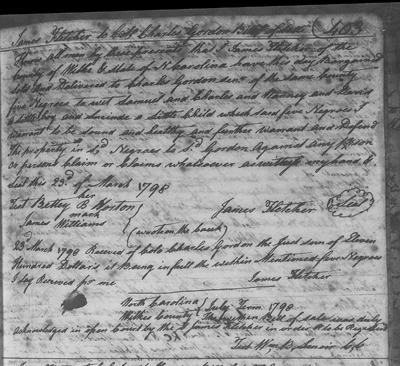 James Fletcher to Colo Charles Gordon Bill of Sale
Know all men by these presents that I James Fletcher of the
County of Wilkes & State of N Carolina have this day Bargained
Sold and Delivered to Charles Gordon Senr of the same County
five Negroes to wit Samuel and Charles and and David
a little boy and a little Child which said five Negroes I
warrant to be sound and healthy and further warrant and Defend
the property in Sd Negroes to Sd Gordon Against Any Person
or persons Claim or Claims whatsoever as witness my hand &
Seal this 23d of March 1798
her
Test Betsey B Norton
mark
James Fletcher Seal
James Williams
(wrote on the back)
23 March 1798 Received of Colo Charles Gordon the full sum of Eleven
Hundred Dollars it Being in full the within Mentioned five Negroes
I Say Received pr me
James Fletcher
North Carolina
Wilkes County July Term 1798
The within Bill of Sale was duly
acknowledged in open Court by the Sd James Fletcher in order to be Registered
Test Wm B. Lenoir